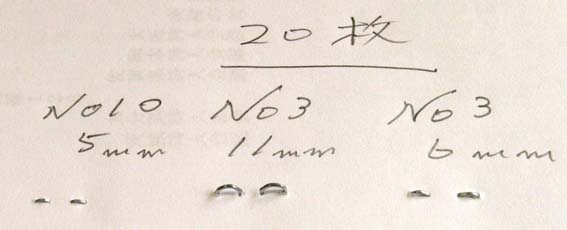 20枚
No10 No3 No3
5mm 11mm 6mm